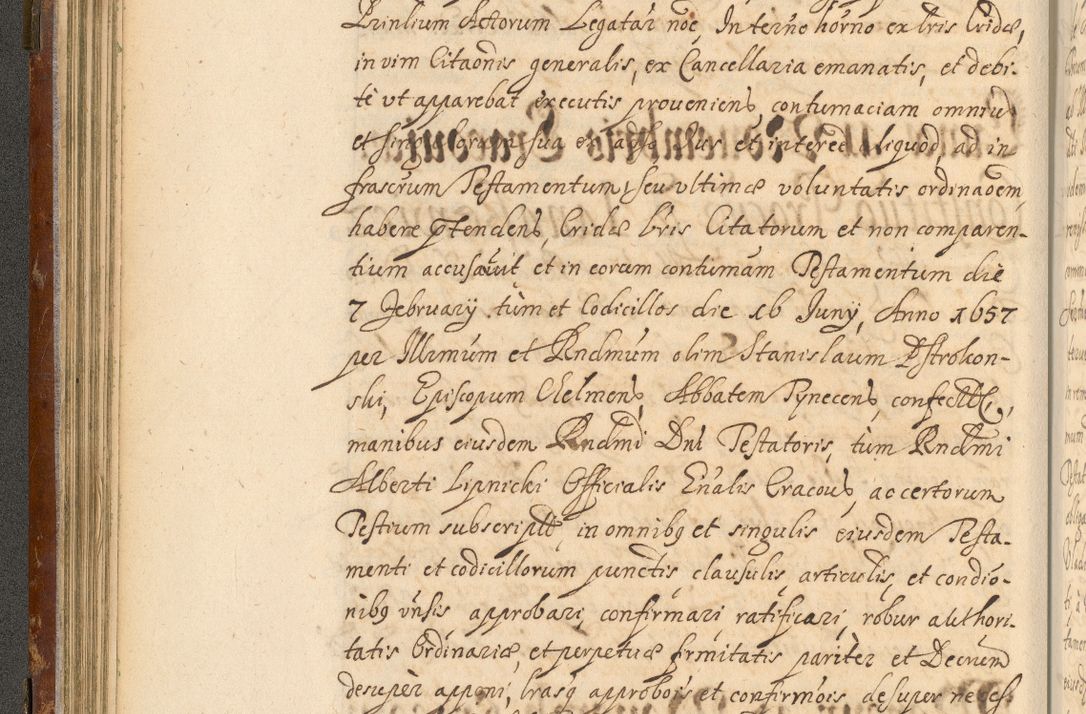 Prīnlium Actorum Legatar noē, In terno horno ex lris Cridæ,
in vim Citaōnis generalis, ex Cancellaria emanatis, et debi-
tè vt apparebat executis proueniens, contumaciam omnium
et singulorum sua ex adso Jus et interee aliquod, ad in
frascrum Testamentum, seu vltimæ voluntatis ordinaōem
habere ptendens, Cridæ lris Citatorum et non comparen-
tium accusauit et in eorum contumam Testamentum die
7 February tùm et Codicillos die 16 Juny, Anno 1657
per Illrmum et Rndmum olim Stanislaum Pstrokon-
ski, Episcopum Chelmens, Abbatem Tynecens, confect,
manibus eiusdem Rndmi Dni Testatoris, tùm Rndmi
Alberti Lipnicki Officialis Gnalis Cracous, ac certorum
Testium subscriptt, in omnibq et singulis eiusdem Testa-
menti et codicillorum punctis clausulis, articulis, et condiō-
nibq vnsis approbari, confirmari ratificari, robur authori-
tatis Ordinariæ, et perpetuæ firmitatis pariter et Decretum
desupèr apponi, lrasq approbōis et confirmōis desuper neces